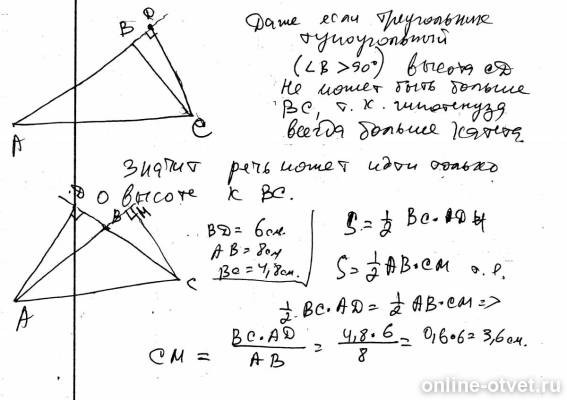 Даже если треугольник
тупоугольный
(∠B > 90°) высота CD
не может быть больше
BC, т.к. гипотенуза
всегда больше катета
D
B
A
C
Значит речь может идти только
о высоте к BC.
D
B
M
A
C
BD = 6 см.
AB = 8 см
BC = 4,8 см.
S = 1/2 BC · AD
S = 1/2 AB · CM т.е.
1/2 BC · AD = 1/2 AB · CM =>
CM = BC · AD / AB = 4,8 · 6 / 8 = 0,6 · 6 = 3,6 см.
online-otvet.ru